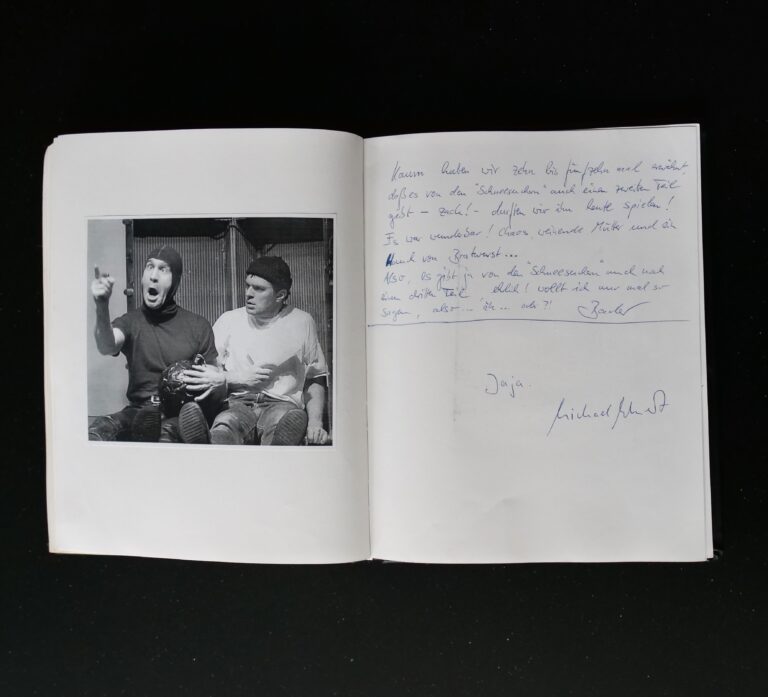 Kaum haben wir zehn bis fünfzehn mal erwähnt,
daß es von den "Schneesuchern" auch einen zweiten Teil
gibt – zack! – durften wir ihn heute spielen!
Es war wunderbar! Chaos weinende Mütter und ein
Hauch von Bratwurst...
Also, es gibt ja von den "Schneesuchern" auch noch
einen dritten Teil ehrlich! wollt ich nur mal so
sagen, also... äh... oder?!
Jaja.
Michael